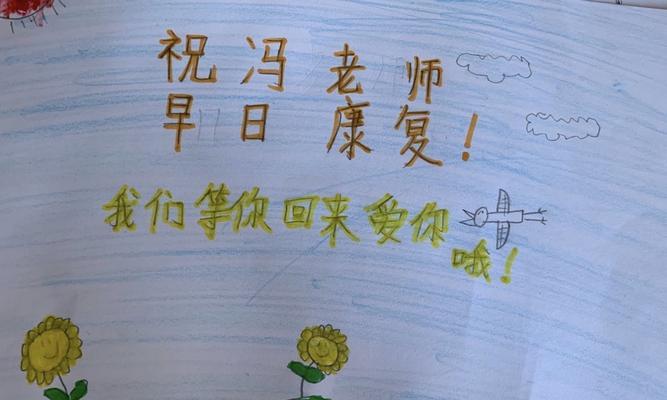 祝冯老师
早日康复！
我们等你回来爱你
哦！